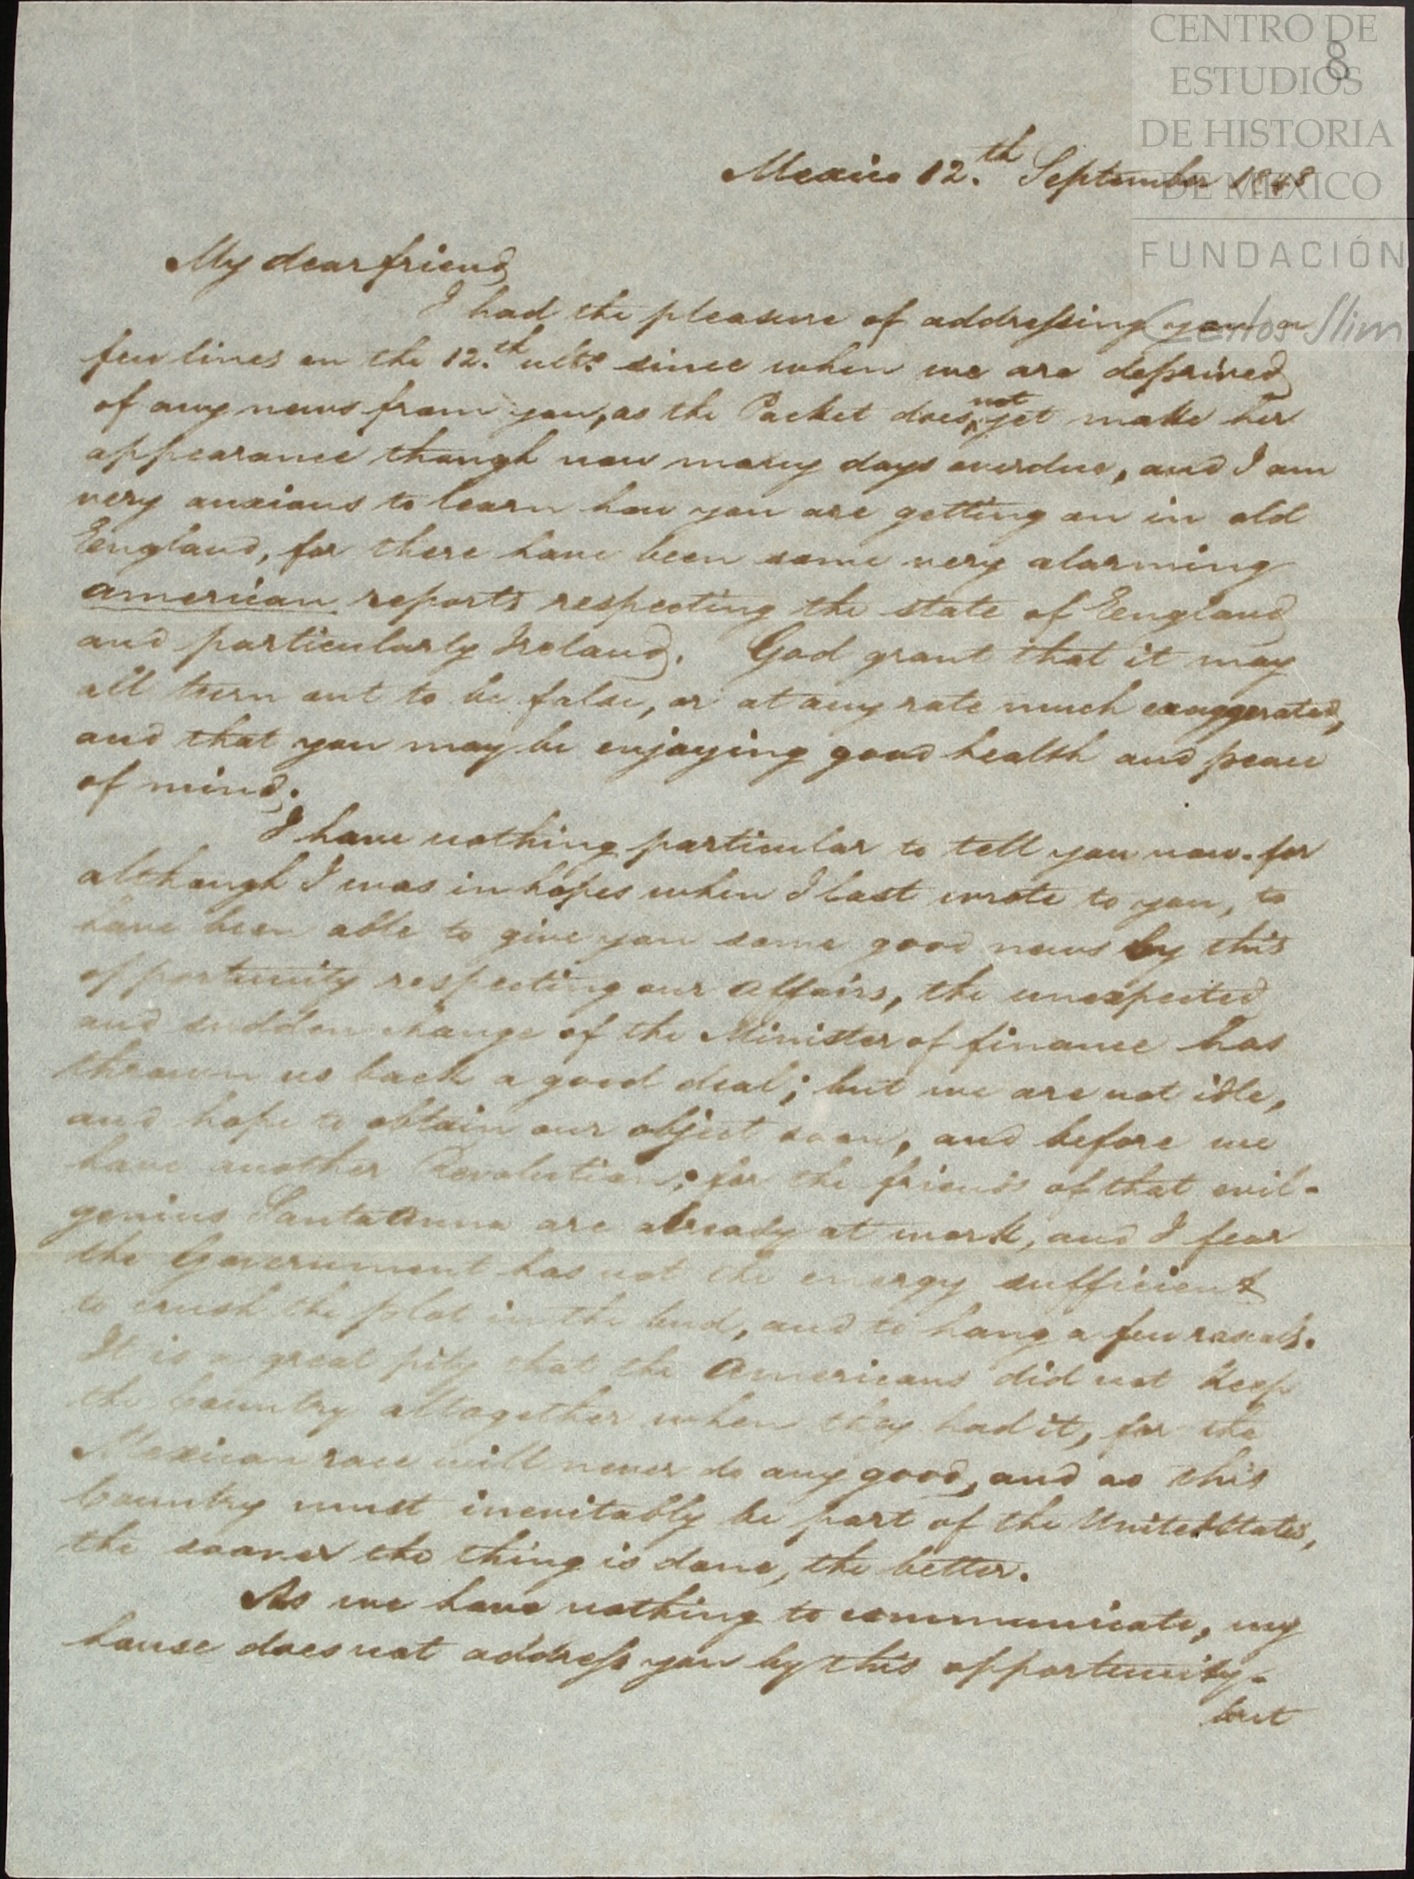 CENTRO DE
ESTUDIOS
DE HISTORIA
DE MÉXICO
FUNDACIÓN
Carlos Slim
8
Mexico 12.th September 1848
My dear friend
I had the pleasure of addressing you a
few lines on the 12.th ulto. since when we are deprived
of any news from you, as the Packet does not yet make her
appearance though now many days overdue, and I am
very anxious to learn how you are getting on in old
England, for there have been some very alarming
american reports respecting the state of England
and particularly Ireland. God grant that it may
all turn out to be false, or at any rate much exaggerated,
and that you may be enjoying good health and peace
of mind.
I have nothing particular to tell you now. for
although I was in hopes when I last wrote to you, to
have been able to give you some good news by this
opportunity respecting our affairs, the unexpected
and sudden change of the Minister of finance has
thrown us back a good deal; but we are not idle,
and hope to obtain our object soon, and before we
have another Revolution; for the friends of that evil-
genius Santa Anna are already at work, and I fear
the Government has not the energy sufficient
to crush the plot in the bud, and to hang a few rascals.
It is a great pity that the Americans did not keep
the Country altogether when they had it, for the
Mexican race will never do any good, and as this
Country must inevitably be part of the United States,
the sooner the thing is done, the better.
As we have nothing to communicate, my
house does not address you by this opportunity-
but